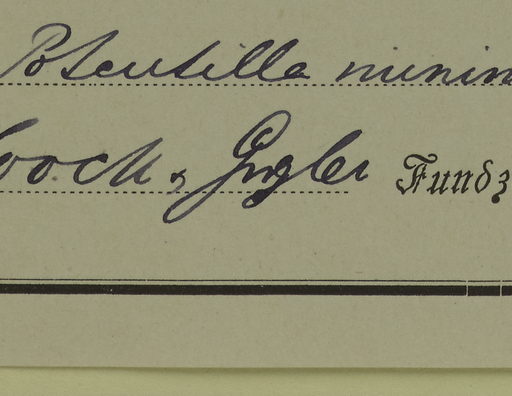 Potentilla minim
Gugler Fundz